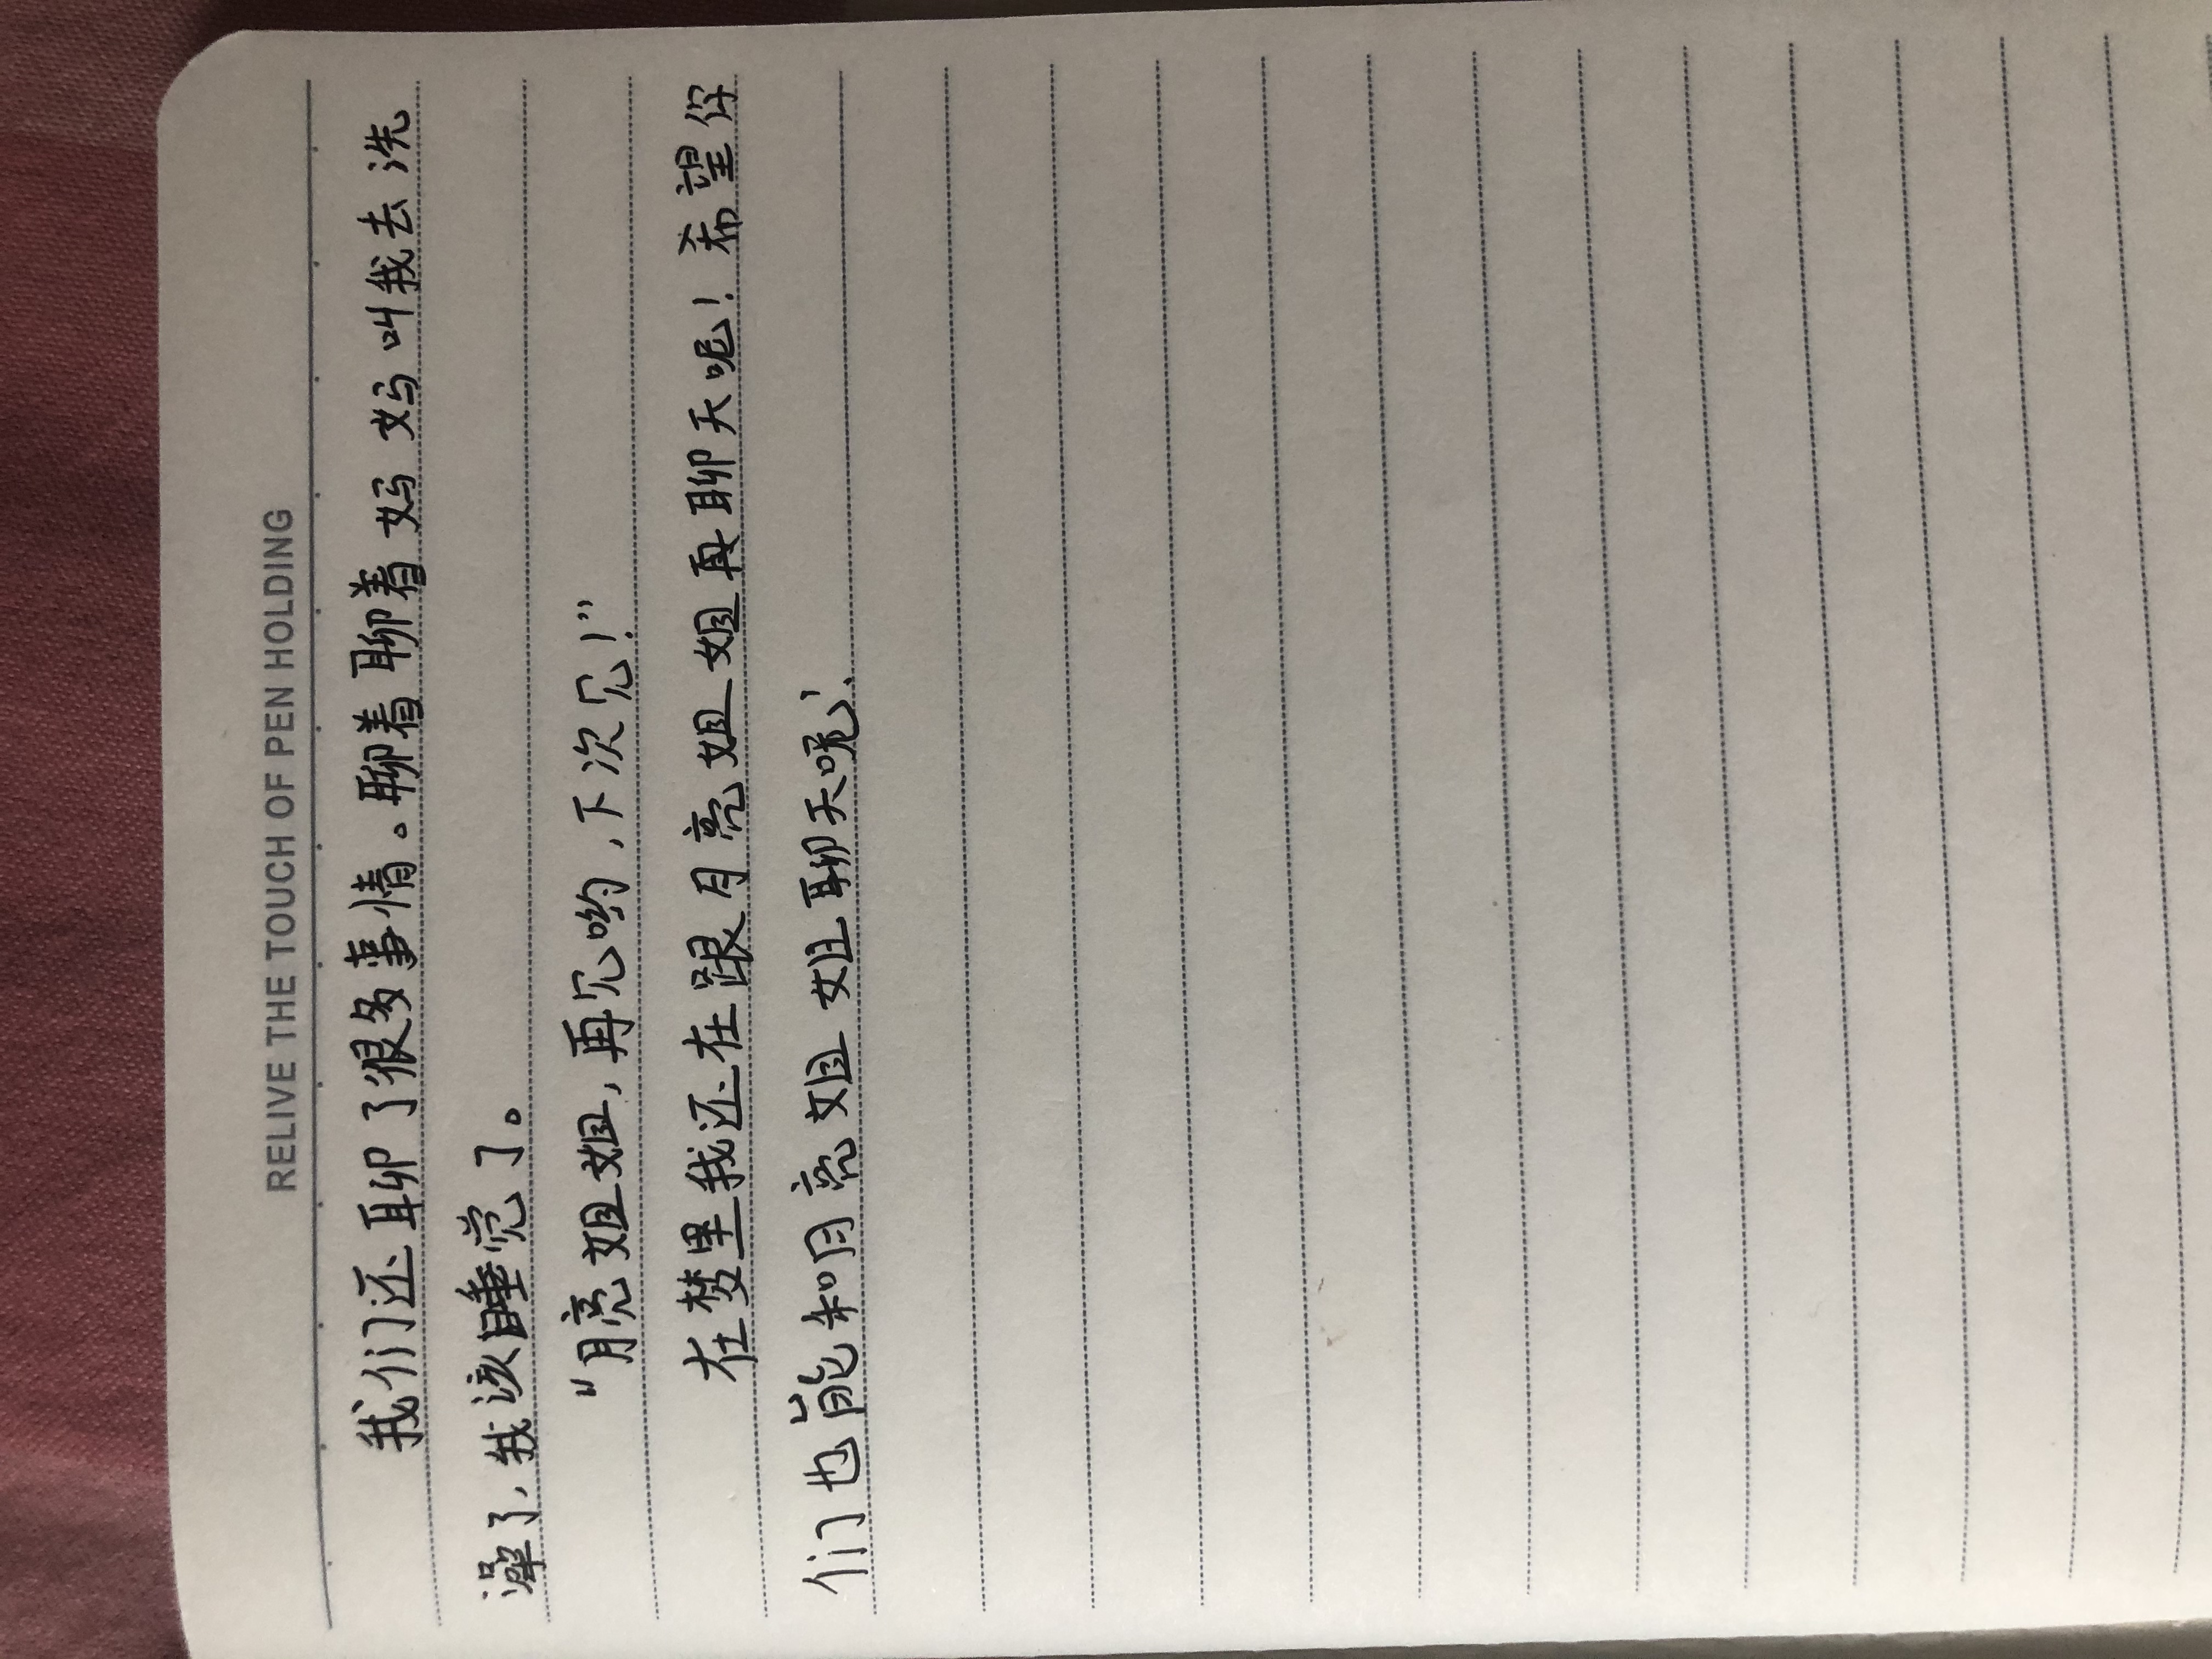 RELIVE THE TOUCH OF PEN HOLDING
我们还聊了很多事情。聊着聊着妈妈叫我去洗
澡了,我该睡觉了。
“月亮姐姐,再见哟,下次见!”
在梦里我还在跟月亮姐姐再聊天呢!希望你
们也能和月亮姐姐聊天呢!